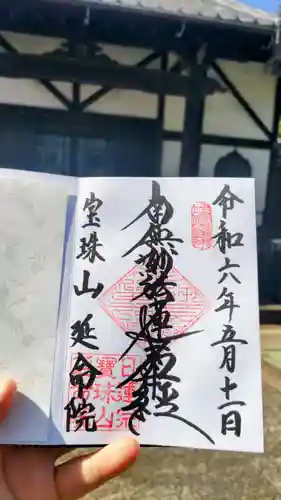 令和六年五月十一日
南無妙法蓮華経
宝珠山延命院